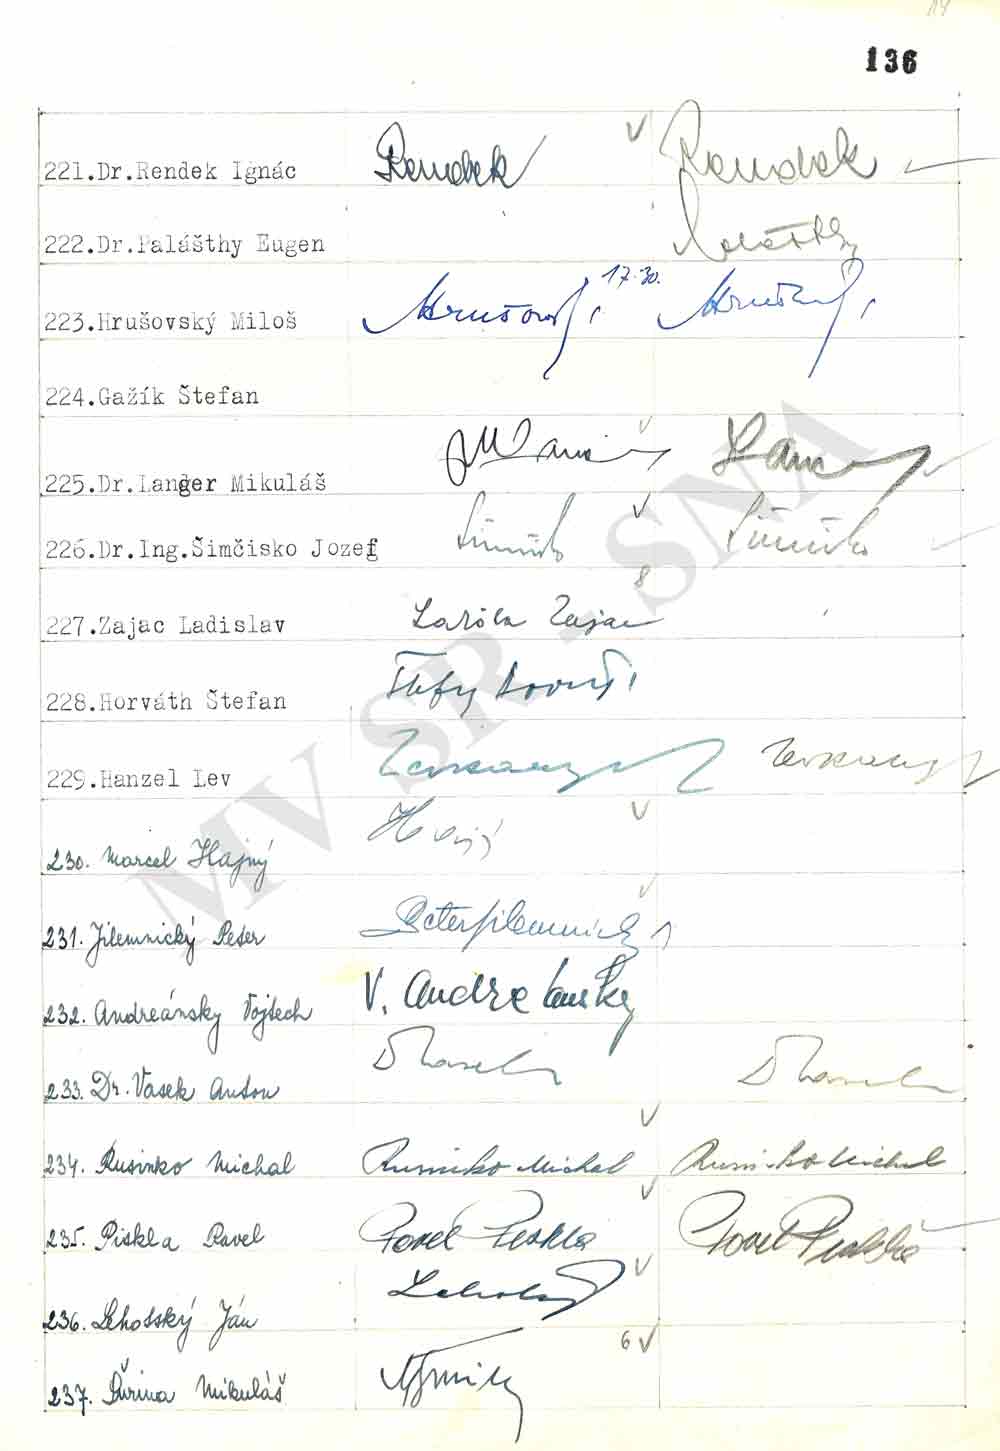 136
221.Dr.Rendek Ignác Rendek Rendek
222.Dr.Palášthy Eugen
223.Hrušovský Miloš Hrušovský 17.30. Hrušovský
224.Gažík Štefan
225.Dr.Langer Mikuláš
226.Dr.Ing.Šimčisko Jozef
8
227.Zajac Ladislav Zajac
228.Horváth Štefan
229.Hanzel Lev
230. Marcel Hajný Hajný
231. Jilemnický Peter Peter Jilemnický
232. Andreánsky Vojtech V. Andreánsky
233. Dr. Vasek Anton
234. Rusinko Michal Rusinko Michal Rusinko Michal
235. Piskla Pavel Pavel Piskla Pavel Piskla
236. Lehotský Ján
6
237. Šurina Mikuláš
MV SR - SNA